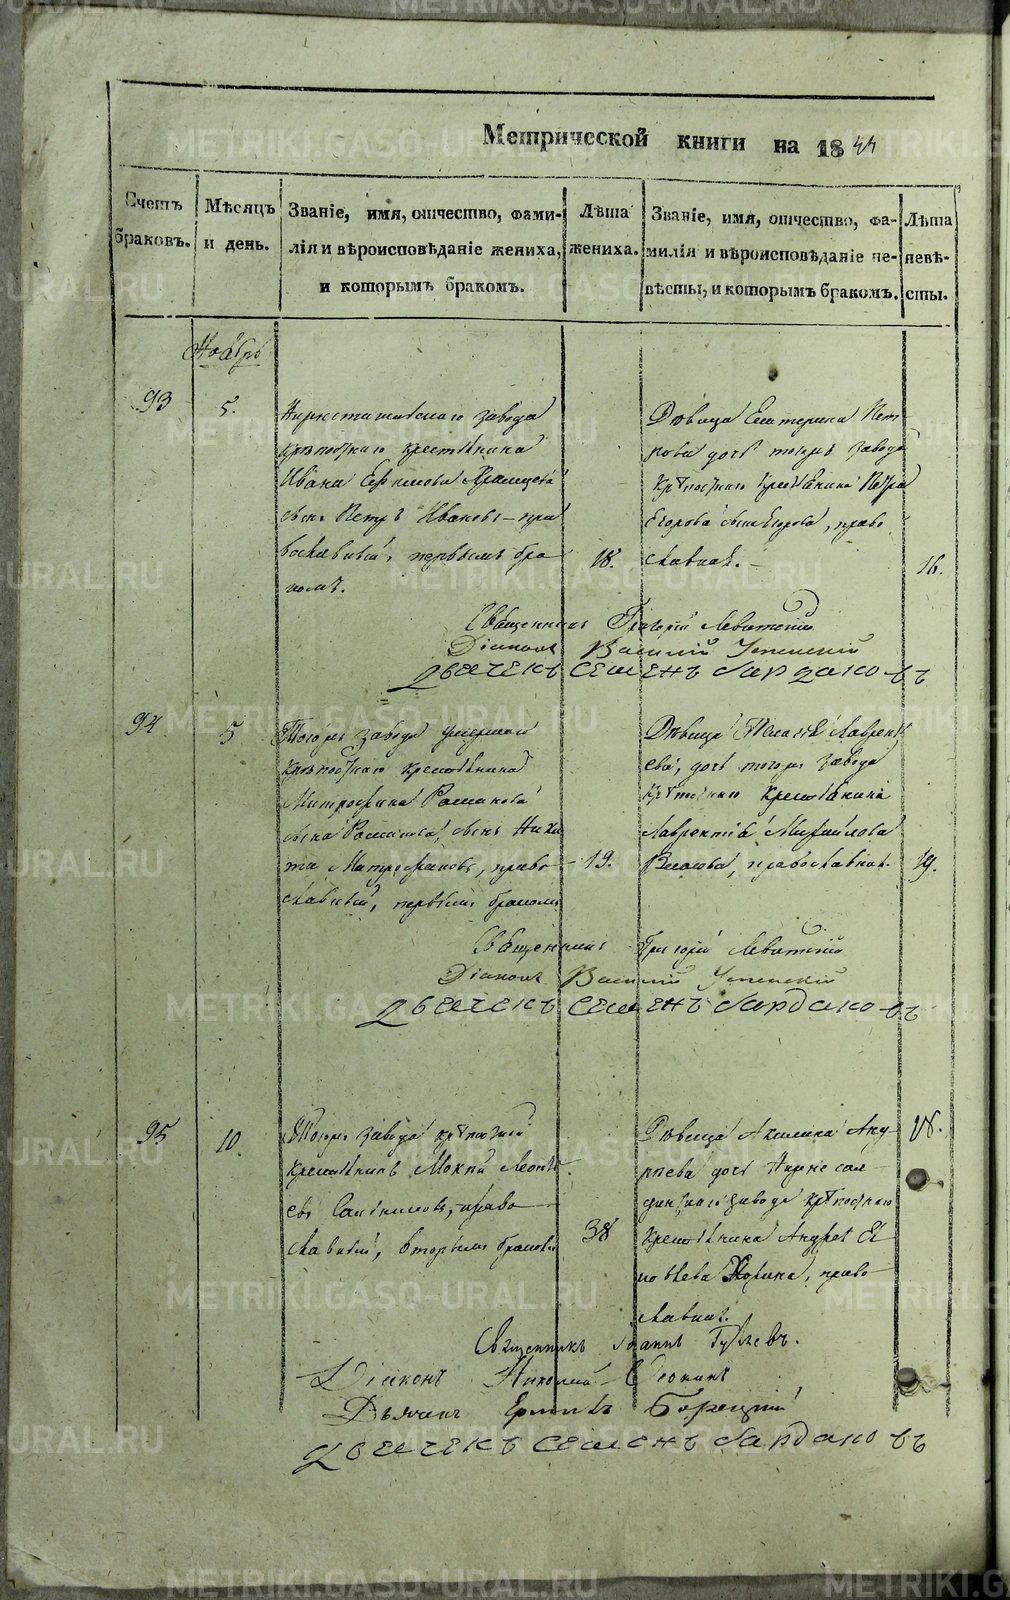 Метрической книги на 1844
Счетъ браковъ.
Мѣсяцъ и день.
Званіе, имя, отчество, фами-
лія и вѣроисповѣданіе жениха,
и которымъ бракомъ.
Лѣта
жениха.
Званіе, имя, отчество, фа-
милія и вѣроисповѣданіе не-
вѣсты, и которымъ бракомъ.
Лѣта
невѣ-
сты.
Ноябрь
93
5.
завода
крѣпостнаго крестьянина
Ивана
сынъ Петръ Ивановъ - пра
вославный, первымъ бра
комъ.
18.
Дѣвица Екатерина Пет
рова дочь тогоже завода
крѣпостнаго крестьянина Петра
Егорова православная.
16.
Священникъ Григорій Левитскій
Діаконъ Василій Успенскій
Дьячекъ Семенъ
94
5
Тогоже завода умершаго
крѣпостнаго крестьянина
Митрофана Романова
сына Романова, сынъ Ники
та Митрофановъ, право
славный, первымъ бракомъ
19.
Дѣвица Лаврентъ
ева, дочь тогоже завода
крѣпостнаго крестьянина
Лаврентія Михайлова
Власова, православная.
19.
Священникъ Григорій Левитскій
Діаконъ Василій Успенскій
Дьячекъ Семенъ
95
10.
Тогоже завода крѣпостной
крестьянинъ Мокій Леонть
евъ право
славный, вторымъ бракомъ
38
Дѣвица Акилина Анд
реева дочь Нижнесал
динскаго завода крѣпостнаго
крестьянина Андрея
православная.
18.
Священникъ Іоаннъ
Діаконъ Николай
Дьячекъ
Дьячекъ Семенъ
METRIKI.GASO-URAL.RU